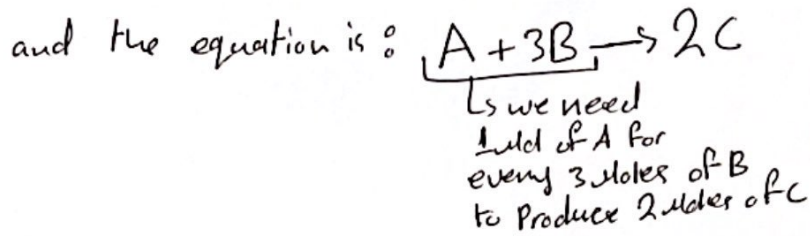 and the equation is : A + 3B → 2C
↳ we need
1 mol of A for
every 3 moles of B
to Produce 2 moles of C